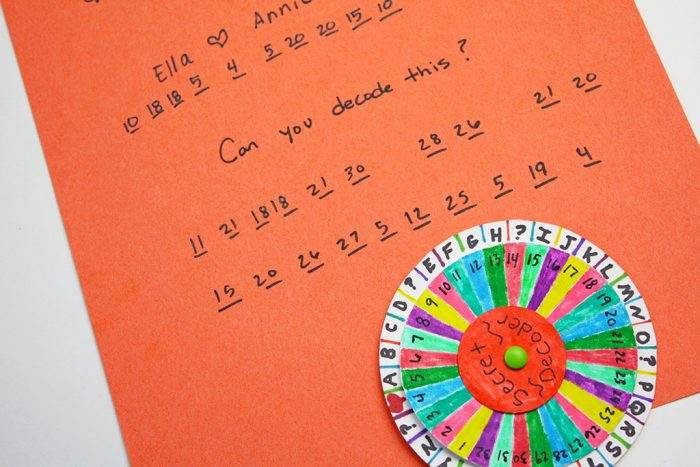 Ella ♡ Annie
10 18 18 5 4 5 20 20 15 10
Can you decode this?
11 21 18 18 21 30 28 26 21 20
15 20 26 27 5 12 25 5 19 4
A B C D ? E F G H ? I J K L M N O ? P Q R S
1 2 3 4 5 6 7 8 9 10 11 12 13 14 15 16 17 18 19 20 21 22 23 24 25 26 27 28 29 30 31 32
Secret
Decoder